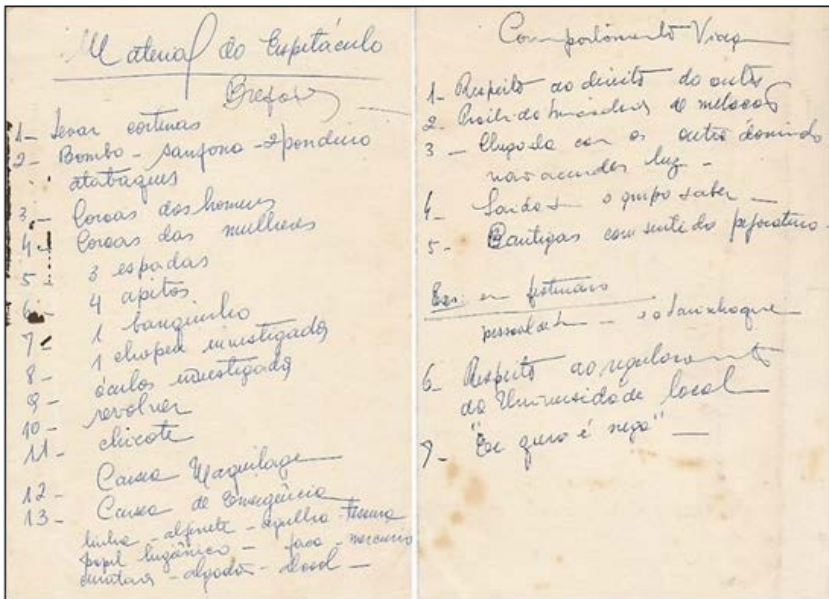 Material do Espetáculo
1- Levar cortinas
2- Bombo - sanfona - 2 pandeiro
atabaques
3- Coroas dos homens
4- Coroas das mulheres
5- 3 espadas
6- 4 apitos
7- 1 banquinho
8- 1 chapeu investigador
9- óculos investigador
10- revolver
11- chicote
12- Caixa Maquilagem
13- Caixa de Emergência
linha - alfinete - agulha - tesoura
papel higiênico - faca - mercurio
- algodão - alcool -
Comportamento Viagem
1- Respeito ao direito do outro
2-
3- Chegada com os outro dormindo
não acender luz -
4- o grupo saber -
5- Cantigas com sentido pejorativo -
pessoal
6- Respeito ao regulamento
da Universidade local
7- "Eu quero é nega" -